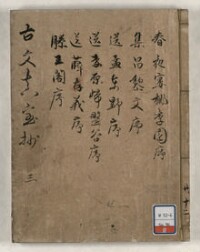 春夜宴桃李園序
集昌黎文序
送孟東野序
送李愿帰盤谷序
送薛存義序
滕王閣序
古文真宝抄 三